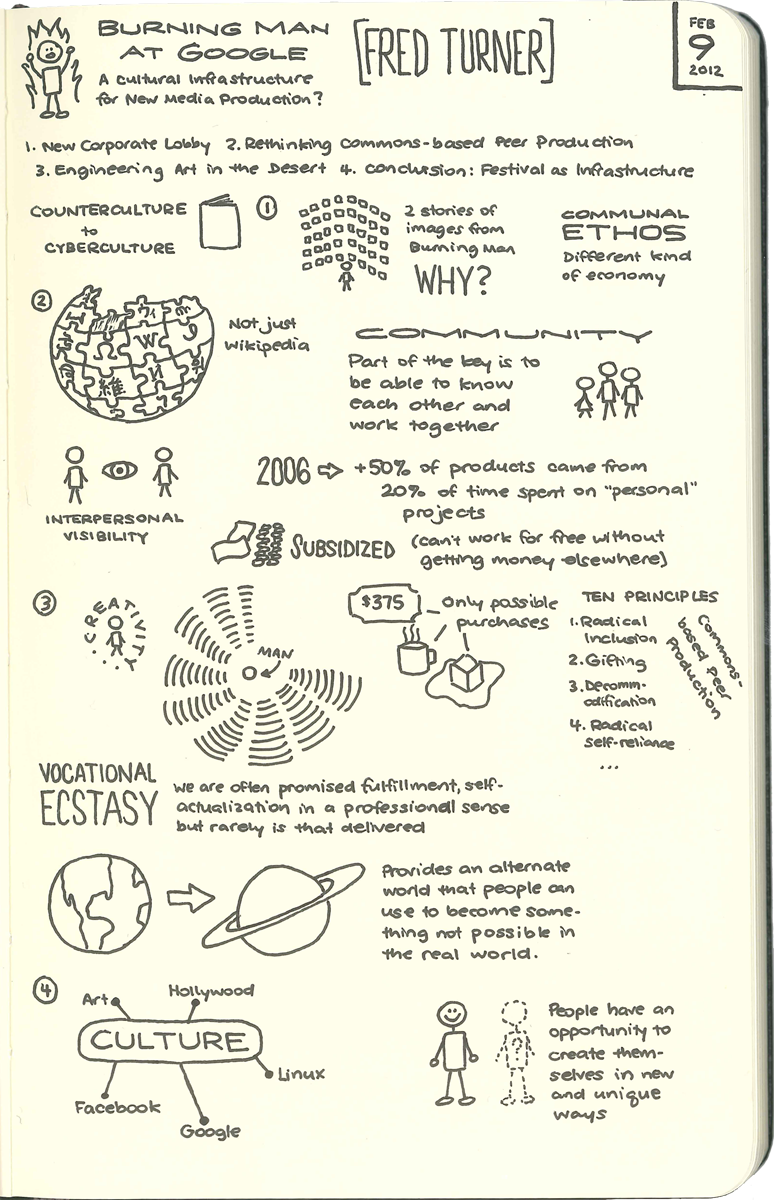 BURNING MAN
AT GOOGLE
A Cultural Infrastructure
for New Media Production?
[FRED TURNER]
FEB
9
2012
1. New Corporate Lobby 2. Rethinking Commons-based Peer Production
3. Engineering Art in the Desert 4. Conclusion: Festival as Infrastructure
COUNTERCULTURE
to
CYBERCULTURE
1
2 stories of
images from
Burning Man
WHY?
COMMUNAL
ETHOS
Different kind
of economy
2
Ω W И 維
Not just
Wikipedia
COMMUNITY
Part of the key is to
be able to know
each other and
work together
INTERPERSONAL
VISIBILITY
2006 ⇨ +50% of products came from
20% of time spent on "personal"
projects
SUBSIDIZED (can't work for free without
getting money elsewhere)
3
CREATIVITY...
MAN
$375
Only possible
purchases
TEN PRINCIPLES
1. Radical
Inclusion
2. Gifting
3. Decomm-
odification
4. Radical
self-reliance
...
Commons-
based Peer
Production
VOCATIONAL
ECSTASY
We are often promised fulfillment, self-
actualization in a professional sense
but rarely is that delivered
Provides an alternate
world that people can
use to become some-
thing not possible in
the real world.
4
Art
Hollywood
CULTURE
Linux
Facebook
Google
?
People have an
opportunity to
create them-
selves in new
and unique
ways